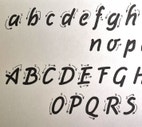 a b c d e f g h
n o p
A B C D E F G H
O P Q R S